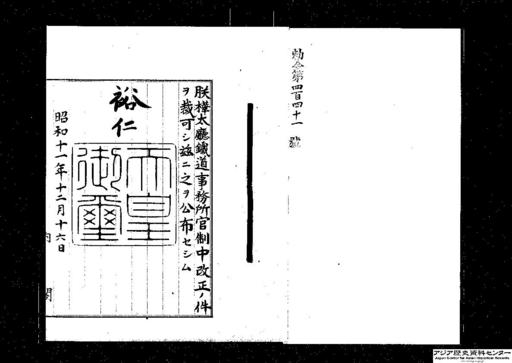 勅令第四百四十一號
朕樺太廳鐵道事務所官制中改正ノ件
ヲ裁可シ玆ニ之ヲ公布セシム
裕仁
天皇御璽
昭和十一年十二月十六日
内閣
アジア歴史資料センター
Japan Center for Asian Historical Records